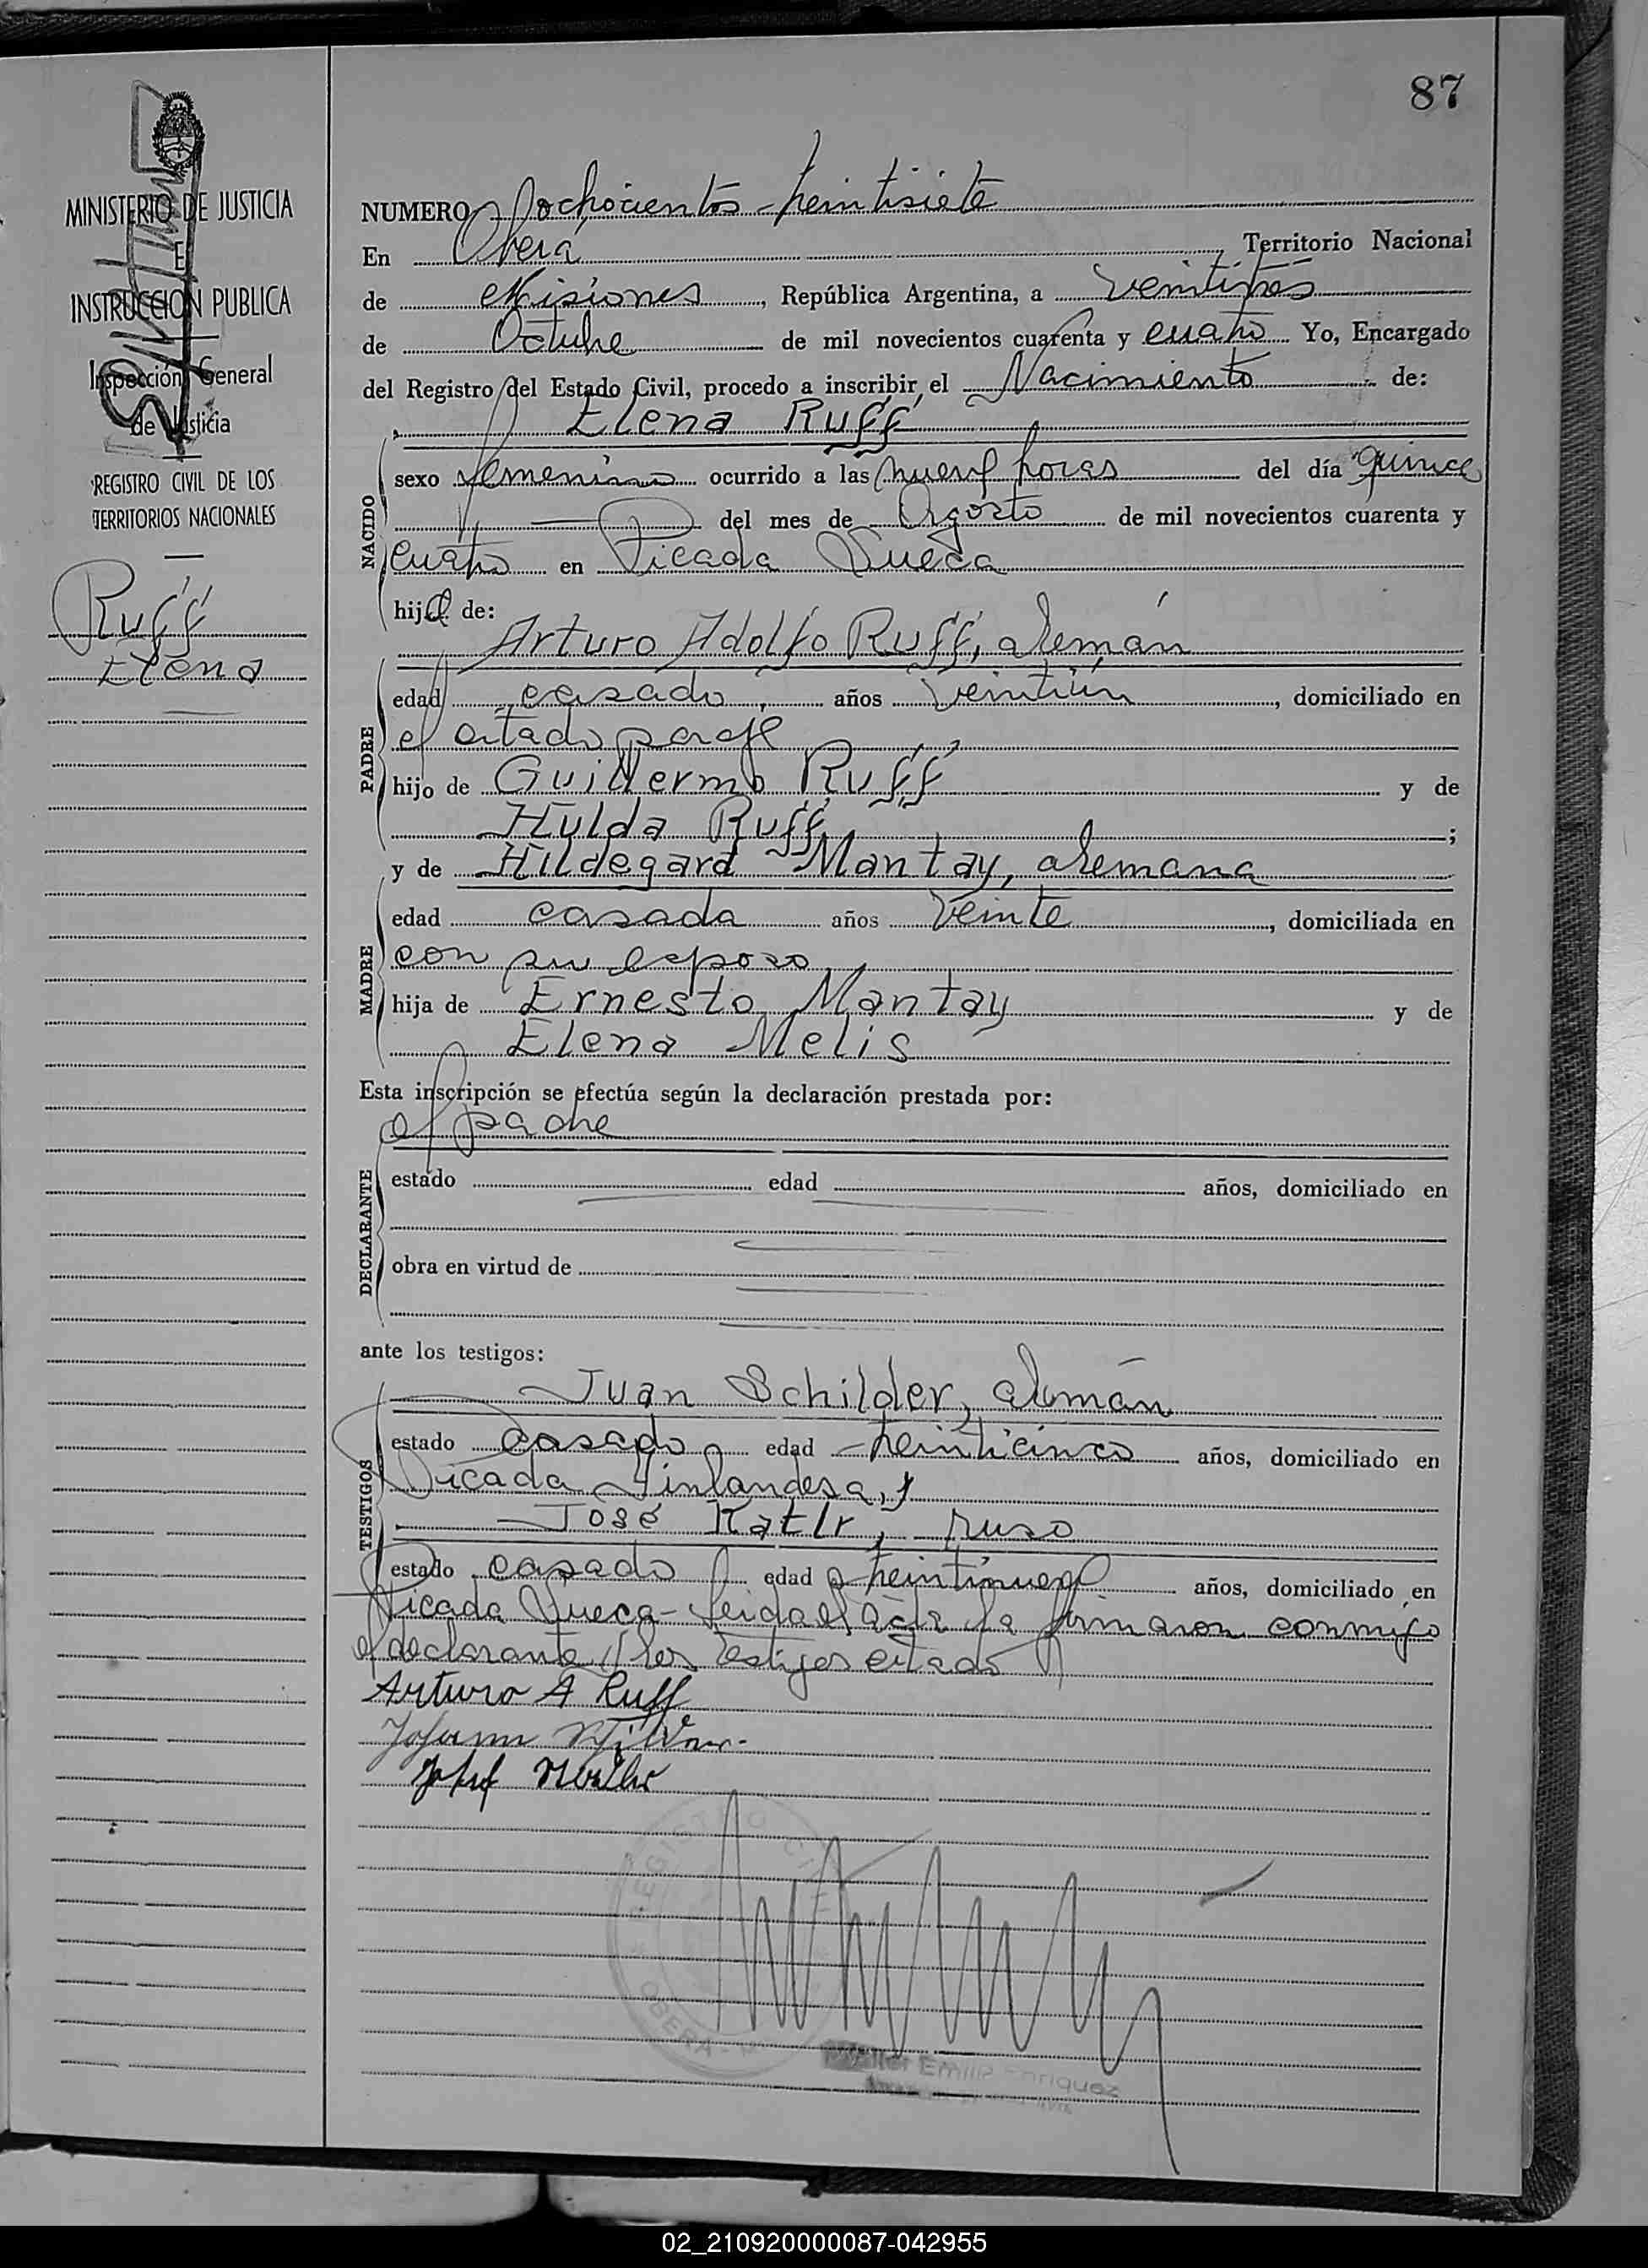 87
MINISTERIO DE JUSTICIA
E
INSTRUCCION PUBLICA
Inspección General
de Justicia
REGISTRO CIVIL DE LOS
TERRITORIOS NACIONALES
Ruff
Elena
NUMERO ochocientos treintisiete
En Oberá, Territorio Nacional
de Misiones, República Argentina, a veintitrés
de Octubre de mil novecientos cuarenta y cuatro Yo, Encargado
del Registro del Estado Civil, procedo a inscribir el Nacimiento de:
Elena Ruff
NACIDO
sexo femenino ocurrido a las nueve horas del día quince
del mes de Agosto de mil novecientos cuarenta y
cuatro en Picada Sueca
hija de:
Arturo Adolfo Ruff, alemán
PADRE
edad casado, años veintiún, domiciliado en
el citado paraje
hijo de Guillermo Ruff y de
Hulda Ruff;
y de Hildegard Mantay, alemana
MADRE
edad casada años veinte, domiciliada en
con su esposo
hija de Ernesto Mantay y de
Elena Melis
Esta inscripción se efectúa según la declaración prestada por:
el padre
DECLARANTE
estado edad años, domiciliado en
obra en virtud de
ante los testigos:
Juan Schilder, alemán
TESTIGOS
estado casado edad treinticinco años, domiciliado en
Picada Finlandesa, y
José, ruso
estado casado edad treintinueve años, domiciliado en
Picada Sueca- Leida el acta la firmaron conmigo
el declarante y los testigos citados
Arturo A Ruff
Johann
Josef
OBERA
Emilio Enriquez
02_210920000087-042955